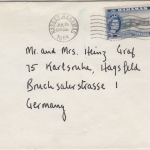 BAHAMAS
Mr. and Mrs. Heinz Graf
75 Karlsruhe, Hagsfeld
Bruchsalerstrasse 1
Germany